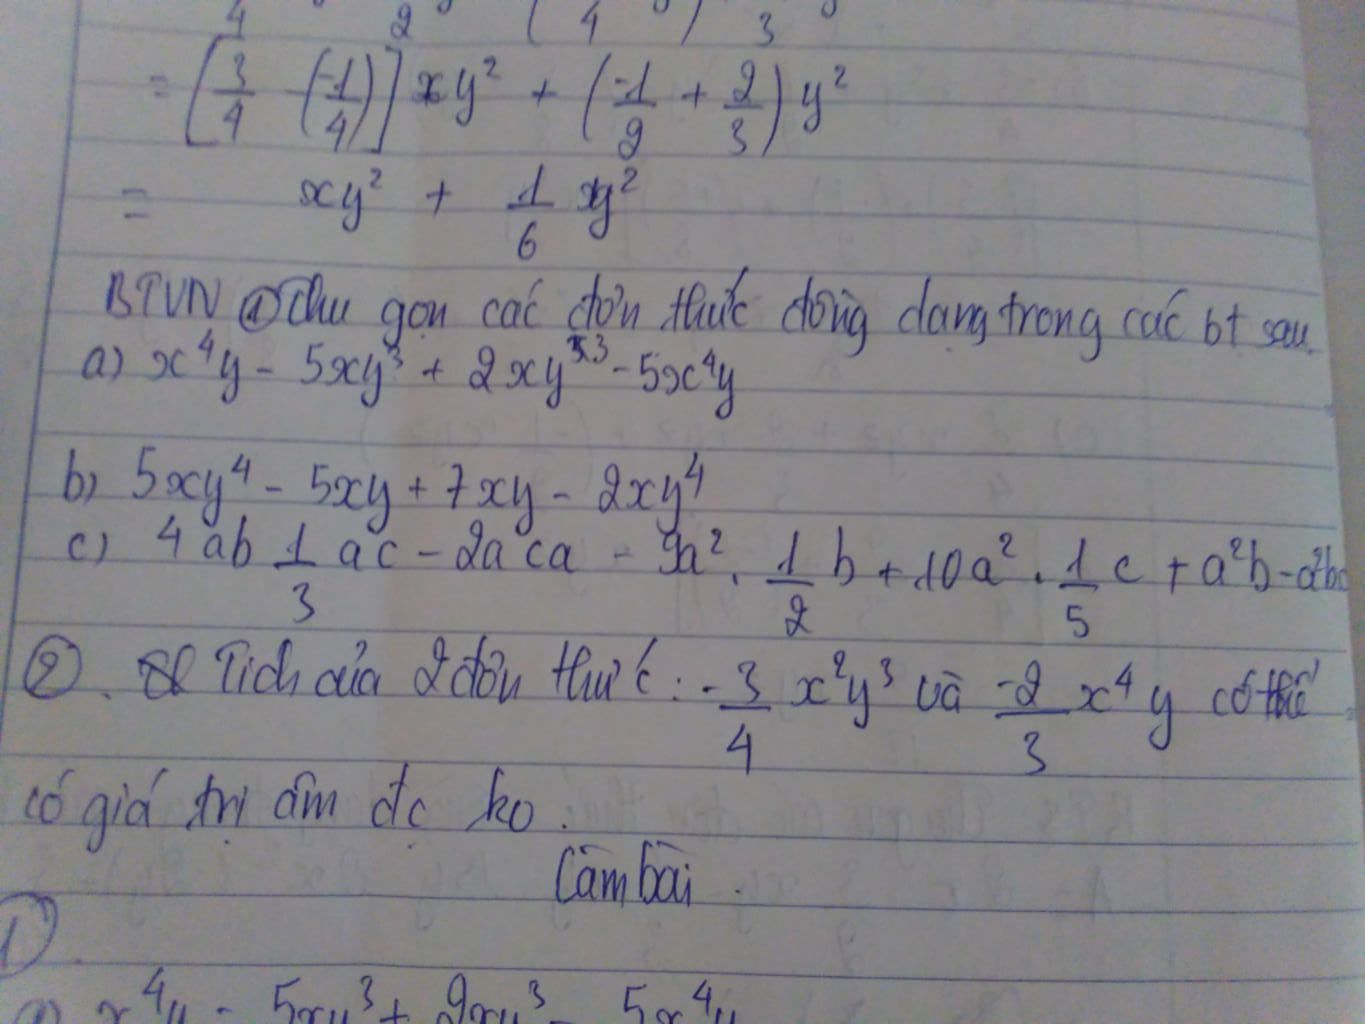 4 2 ( 4 ) 3
= [3/4 - (-1/4)] xy² + (-1/2 + 2/3) y²
= xy² + 1/6 xy²
BTVN ① Thu gọn các đơn thức đồng dạng trong các bt sau.
a) x⁴y - 5xy³ + 2xy³ - 5x⁴y
b) 5xy⁴ - 5xy + 7xy - 2xy⁴
c) 4ab 1/3 ac - 2a ca - 9a². 1/2 b + 10a². 1/5 c + a²b - a²bc
②. Tích của 2 đơn thức: -3/4 x²y³ và -2/3 x⁴y có thể
có giá trị âm đc ko.
Làm bài.
1).
a) x⁴y - 5xy³ + 2xy³ - 5x⁴y